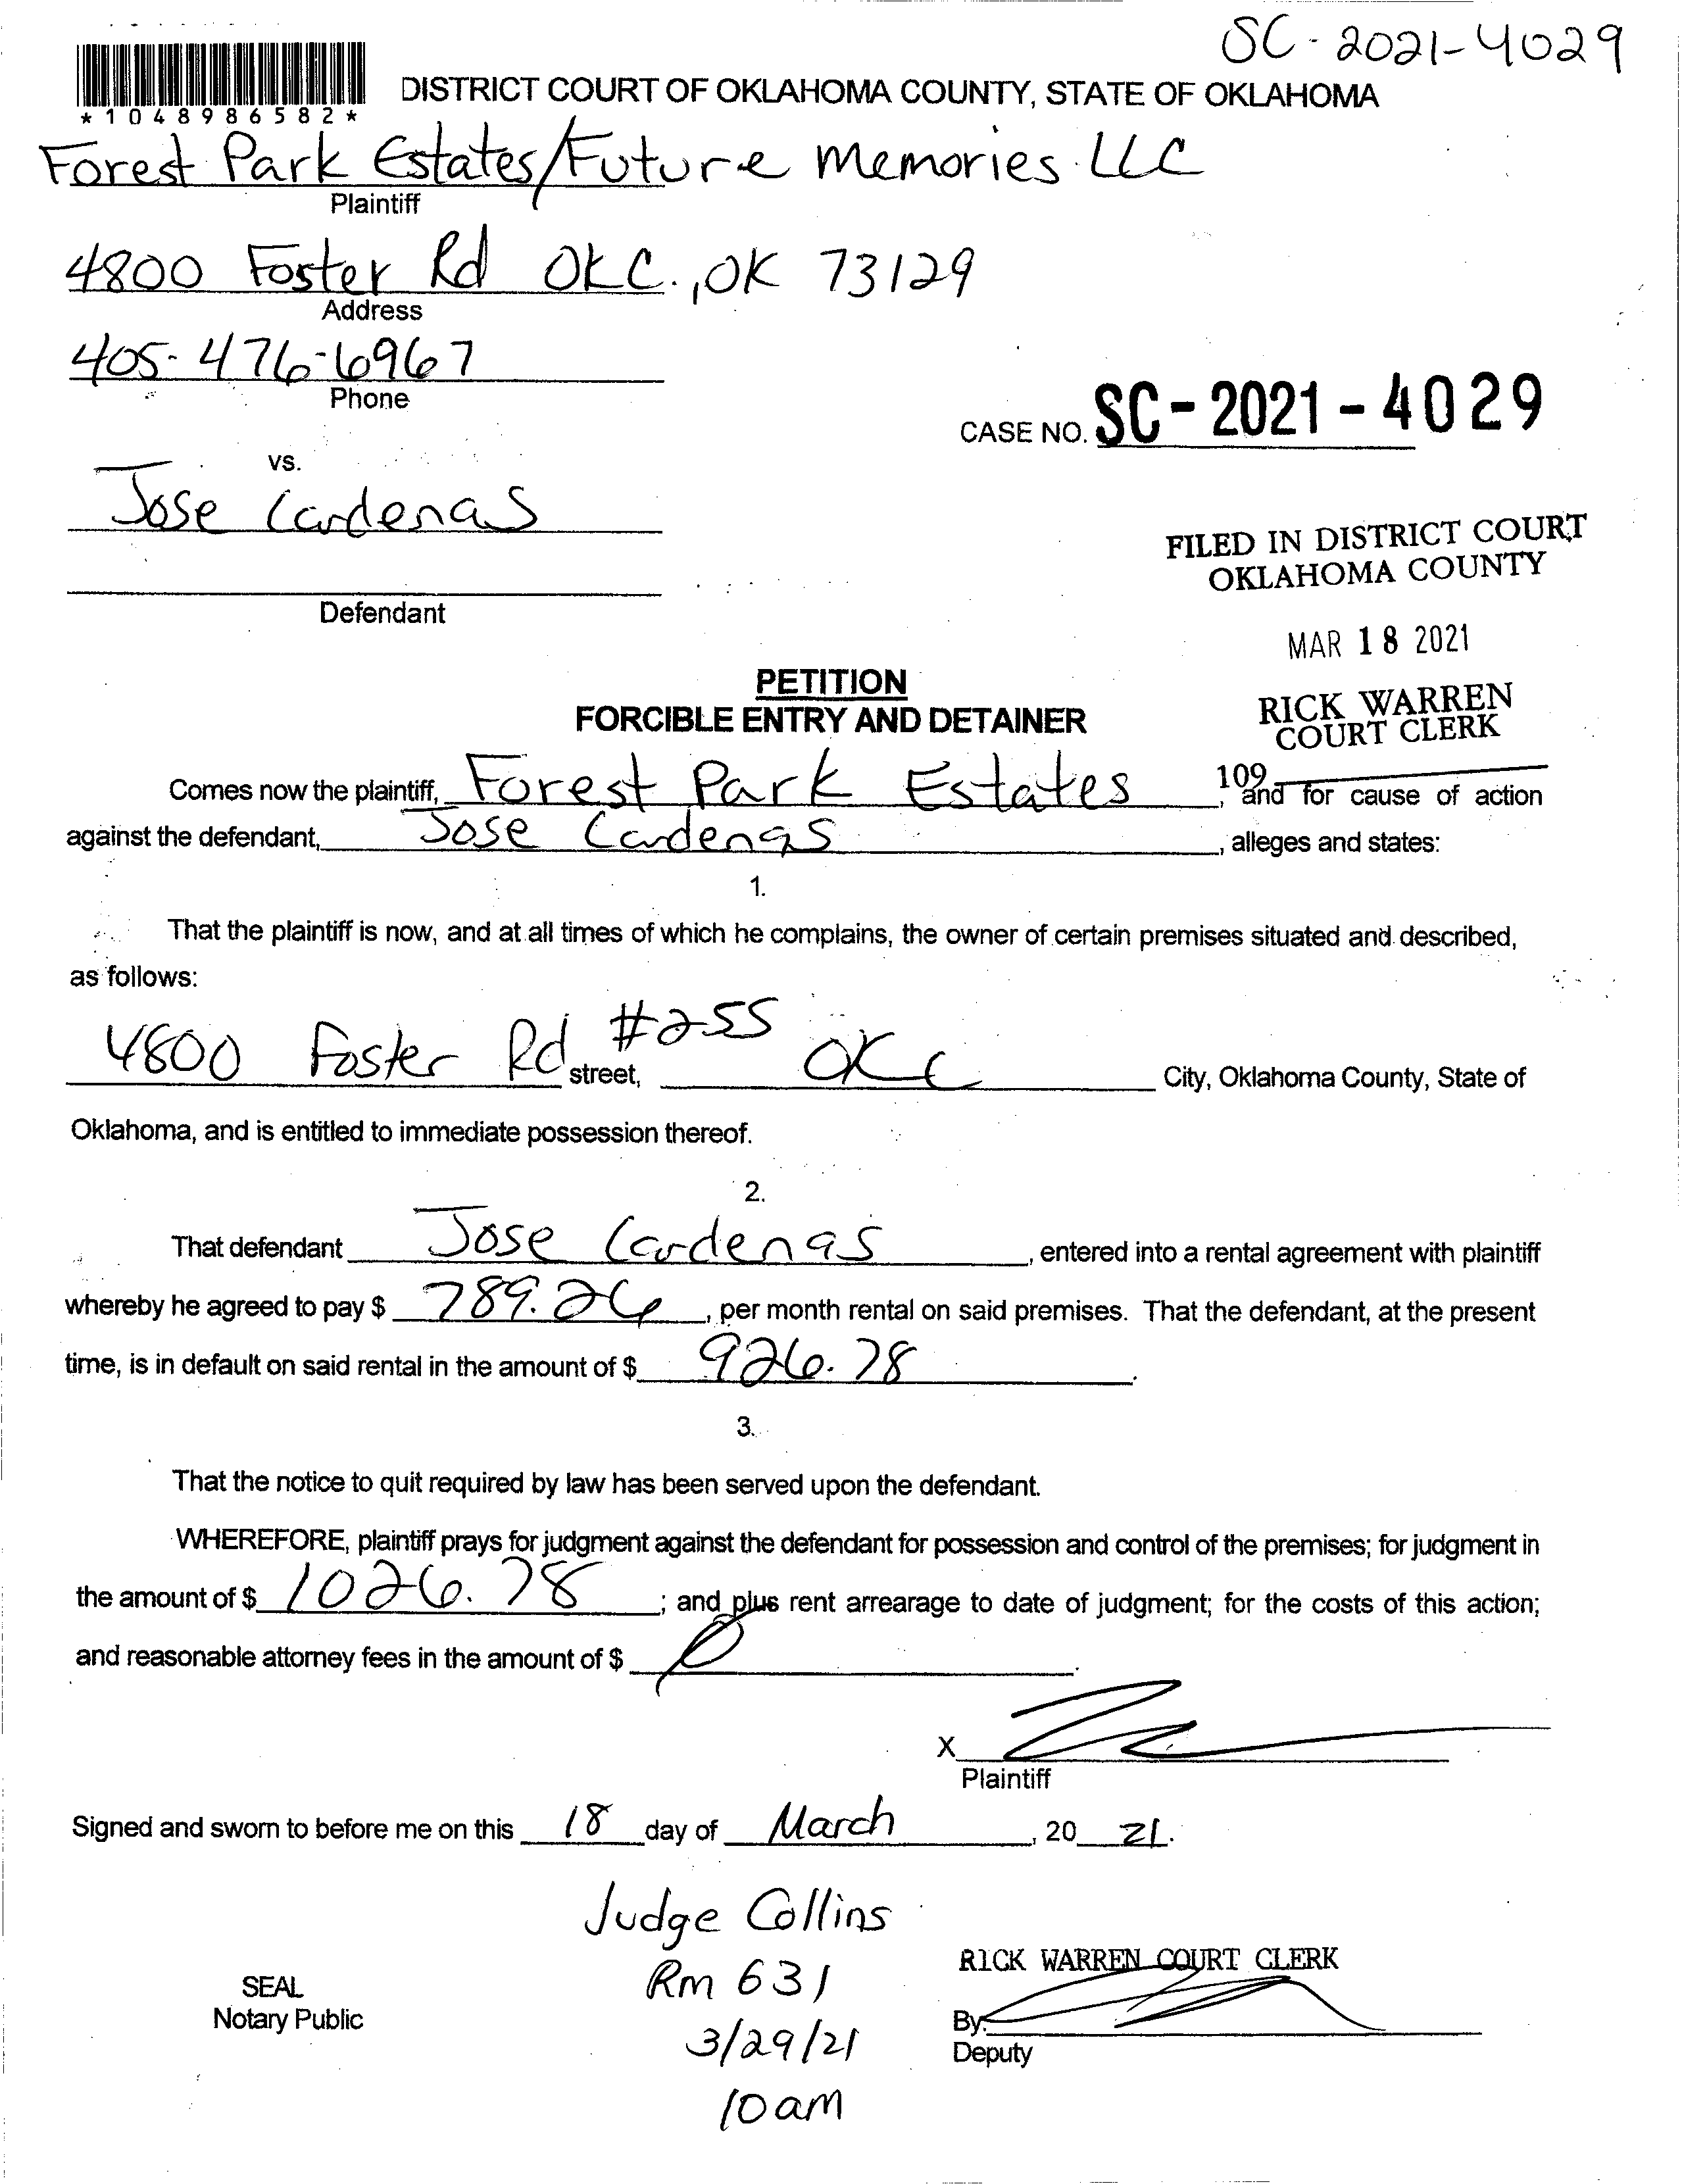 SC-2021-4029
*1048986582*
DISTRICT COURT OF OKLAHOMA COUNTY, STATE OF OKLAHOMA
Forest Park Estates/Future Memories LLC
Plaintiff
4800 Foster Rd OKC., OK 73129
Address
405-476-6967
Phone
CASE NO. SC-2021-4029
vs.
Jose Cardenas
FILED IN DISTRICT COURT
OKLAHOMA COUNTY
Defendant
MAR 18 2021
PETITION
FORCIBLE ENTRY AND DETAINER
RICK WARREN
COURT CLERK
109
Comes now the plaintiff, Forest Park Estates, and for cause of action
against the defendant, Jose Cardenas, alleges and states:
1.
That the plaintiff is now, and at all times of which he complains, the owner of certain premises situated and described,
as follows:
4800 Foster Rd #255 street, OKC City, Oklahoma County, State of
Oklahoma, and is entitled to immediate possession thereof.
2.
That defendant Jose Cardenas, entered into a rental agreement with plaintiff
whereby he agreed to pay $ 789.26, per month rental on said premises. That the defendant, at the present
time, is in default on said rental in the amount of $ 926.78.
3.
That the notice to quit required by law has been served upon the defendant.
WHEREFORE, plaintiff prays for judgment against the defendant for possession and control of the premises; for judgment in
the amount of $ 1026.78; and plus rent arrearage to date of judgment; for the costs of this action;
and reasonable attorney fees in the amount of $
X
Plaintiff
Signed and sworn to before me on this 18 day of March, 20 21.
Judge Collins
Rm 631
3/29/21
10am
SEAL
Notary Public
RICK WARREN COURT CLERK
By:
Deputy